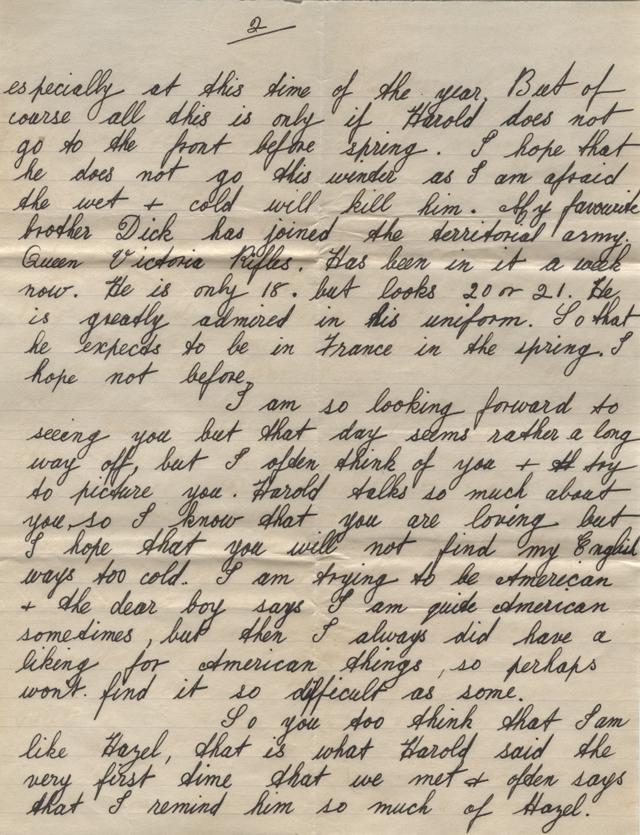 2
especially at this time of the year. But of
course all this is only if Harold does not
go to the front before spring. I hope that
he does not go this winter as I am afraid
the wet + cold will kill him. My favourite
brother Dick has joined the territorial army.
Queen Victoria Rifles. Has been in it a week
now. He is only 18. but looks 20 or 21. He
is greatly admired in his uniform. So that
he expects to be in France in the spring. I
hope not before.
I am so looking forward to
seeing you but that day seems rather a long
way off, but I often think of you + try
to picture you. Harold talks so much about
you, so I know that you are loving but
I hope that you will not find my English
ways too cold. I am trying to be American
+ the dear boy says I am quite American
sometimes, but then I always did have a
liking for American things, so perhaps
won't find it so difficult as some.
So you too think that I am
like Hazel, that is what Harold said the
very first time that we met + often says
that I remind him so much of Hazel.